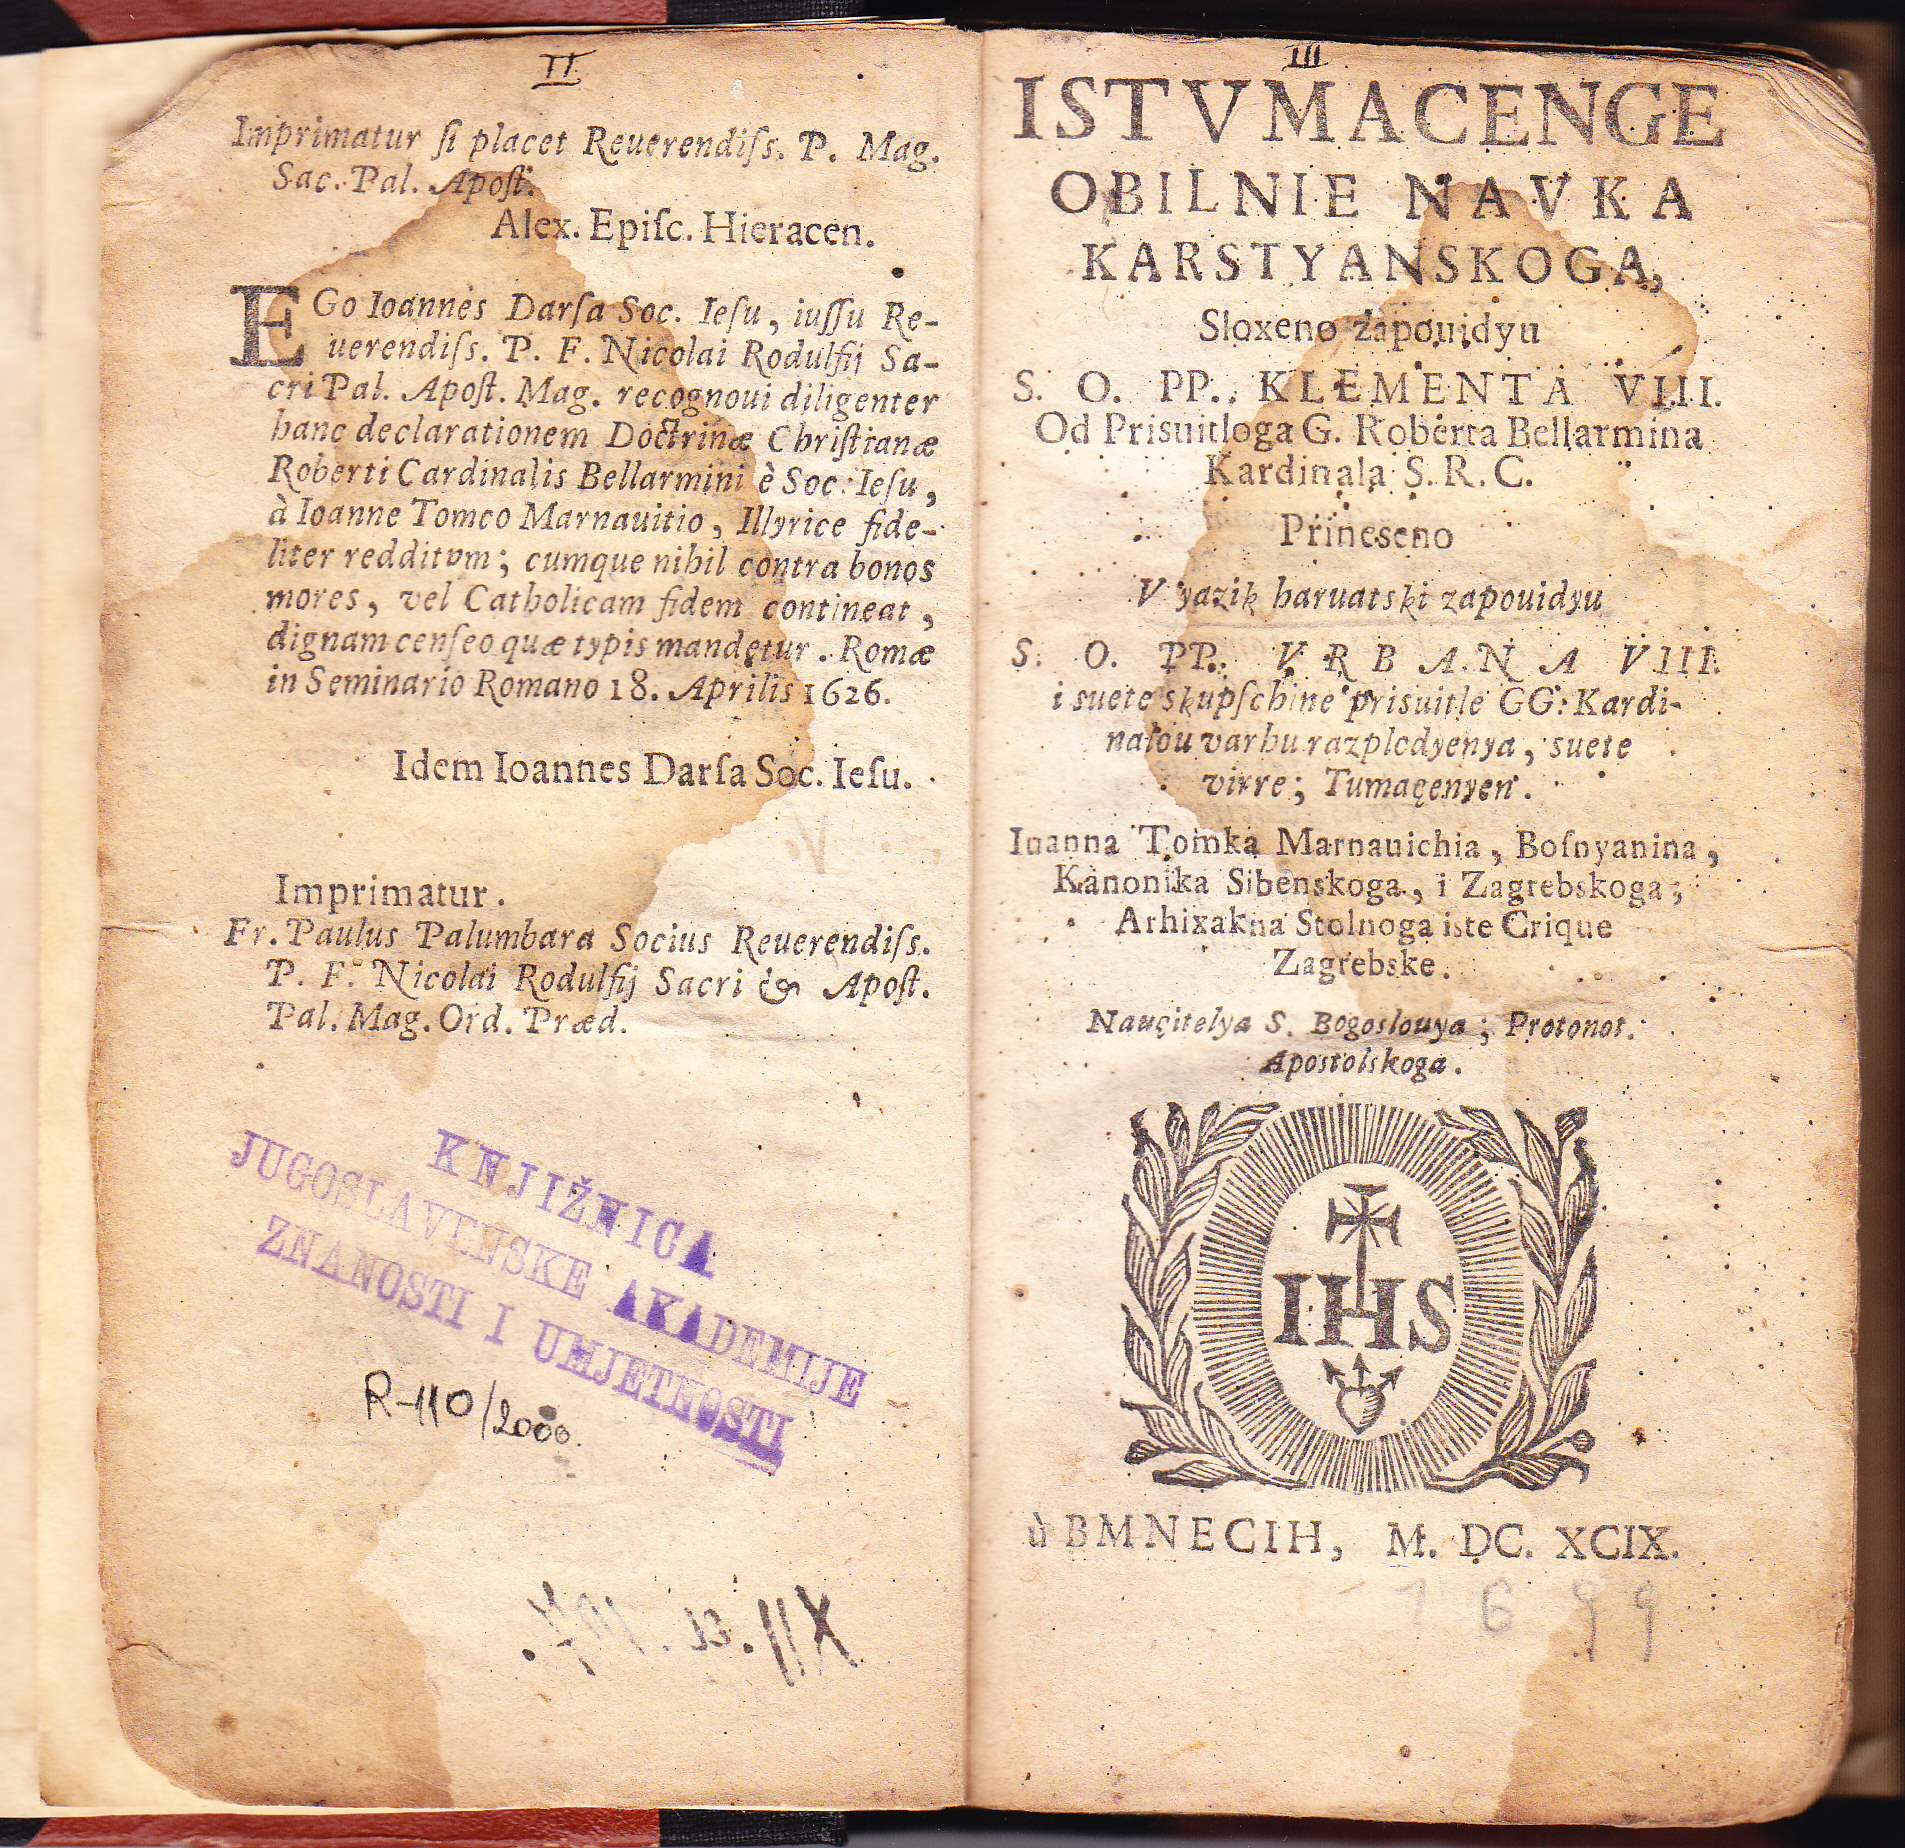 II
Imprimatur ſi placet Reuerendiſs. P. Mag.
Sac. Pal. Apoſt.
Alex. Epiſc. Hieracen.
EGo Ioannes Darſa Soc. Ieſu, iuſſu Re-
uerendiſs. P. F. Nicolai Rodulfij Sa-
cri Pal. Apoſt. Mag. recognoui diligenter
hanc declarationem Doctrinæ Chriſtianæ
Roberti Cardinalis Bellarmini è Soc. Ieſu,
à Ioanne Tomco Marnauitio, Illyrice fide-
liter redditvm; cumque nihil contra bonos
mores, vel Catholicam fidem contineat,
dignam cenſeo quæ typis mandetur. Romæ
in Seminario Romano 18. Aprilis 1626.
Idem Ioannes Darſa Soc. Ieſu.
Imprimatur.
Fr. Paulus Palumbara Socius Reuerendiſs.
P. F. Nicolai Rodulfij Sacri & Apoſt.
Pal. Mag. Ord. Præd.
KNJIŽNICA
JUGOSLAVENSKE AKADEMIJE
ZNANOSTI I UMJETNOSTI
R-110/2000.
III
ISTVMACENGE
OBILNIE NAVKA
KARSTYANSKOGA,
Sloxeno zapouidyu
S. O. PP. KLEMENTA VIII.
Od Prisuitloga G. Roberta Bellarmina
Kardinala S. R. C.
Prineseno
V yazik haruatski zapouidyu
S. O. PP. VRBANA VIII.
i suete skupſchine prisuitle GG: Kardi-
nalou varhu razplodyenya, suete
virre; Tumaçenyen.
Iuanna Tomka Marnauichia, Boſnyanina,
Kanonika Sibenskoga, i Zagrebskoga;
Arhixakna Stolnoga iste Crique
Zagrebske.
Nauçitelya S. Bogoslouya; Protonot.
Apostolskoga.
IHS
ù BMNECIH, M. DC. XCIX.
1699